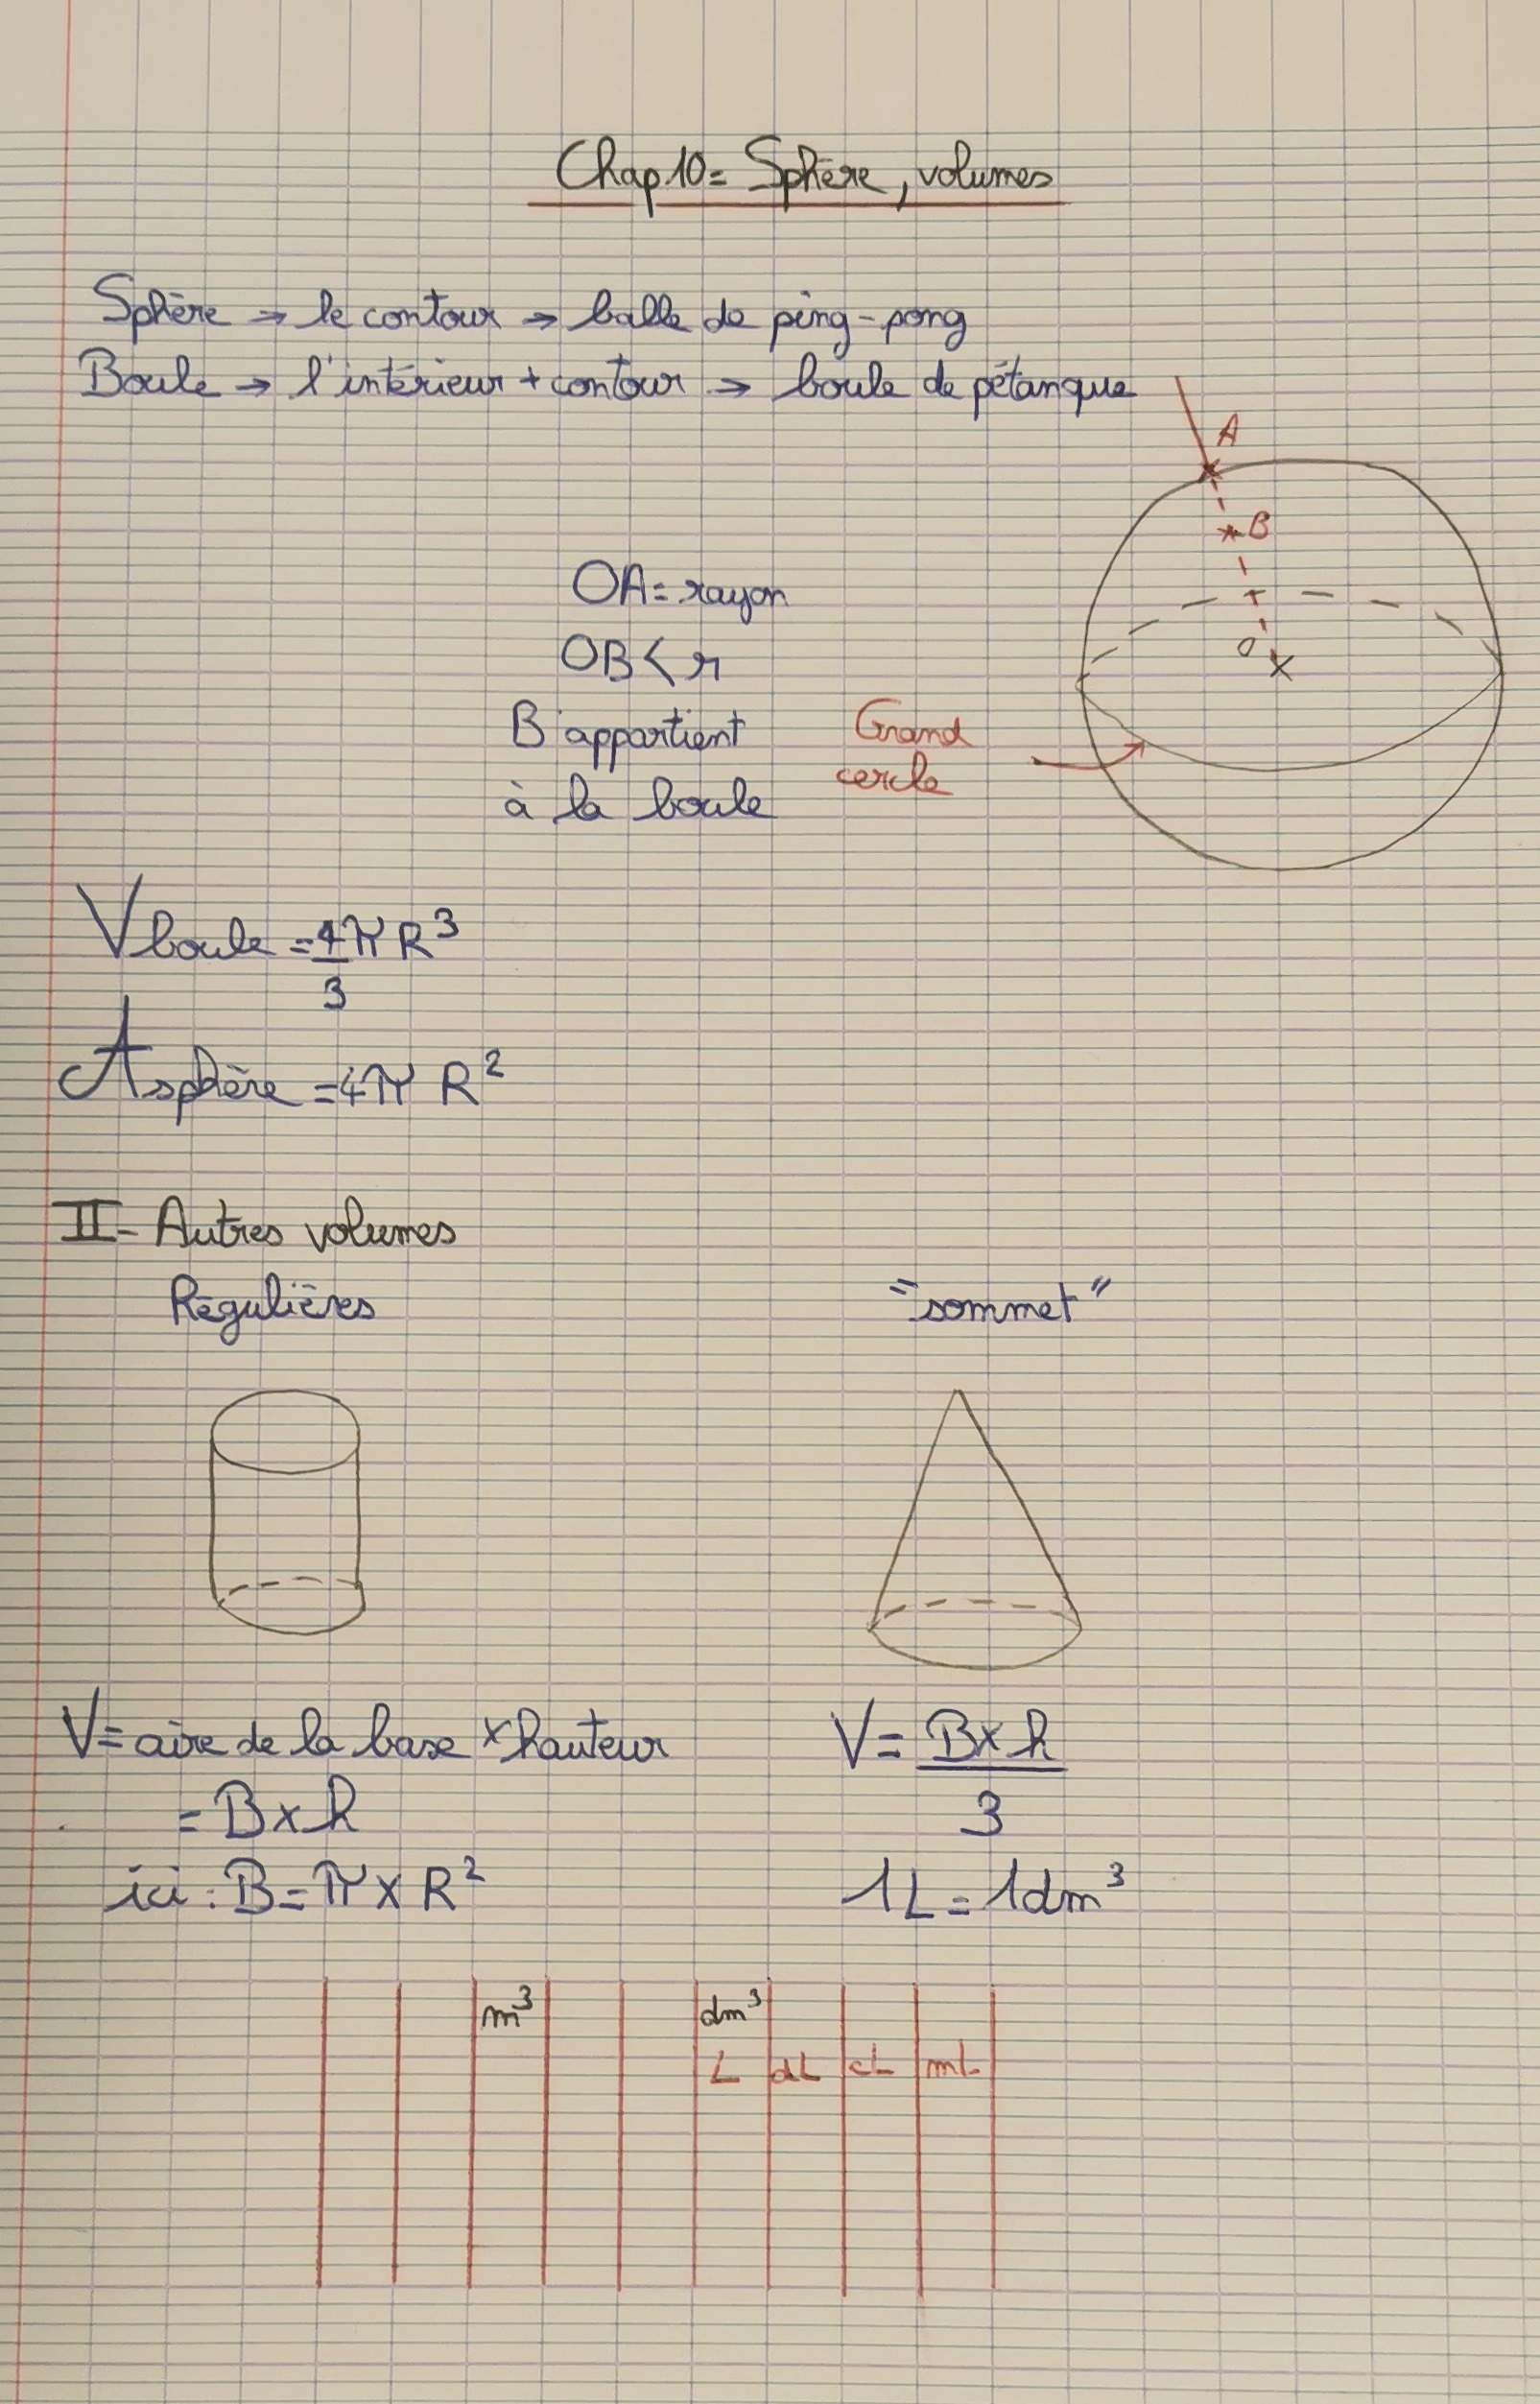 Chap 10 = Sphère, volumes
Sphère → le contour → balle de ping-pong
Boule → l'intérieur + contour → boule de pétanque
A
B
O
OA = rayon
OB < r
B appartient
à la boule
Grand
cercle
Vboule = 4/3 π R³
Asphère = 4π R²
II - Autres volumes
Régulières
"sommet"
V = aire de la base × hauteur
= B × h
ici : B = π × R²
V = B × h / 3
1L = 1dm³
m³ dm³
L dL cL mL